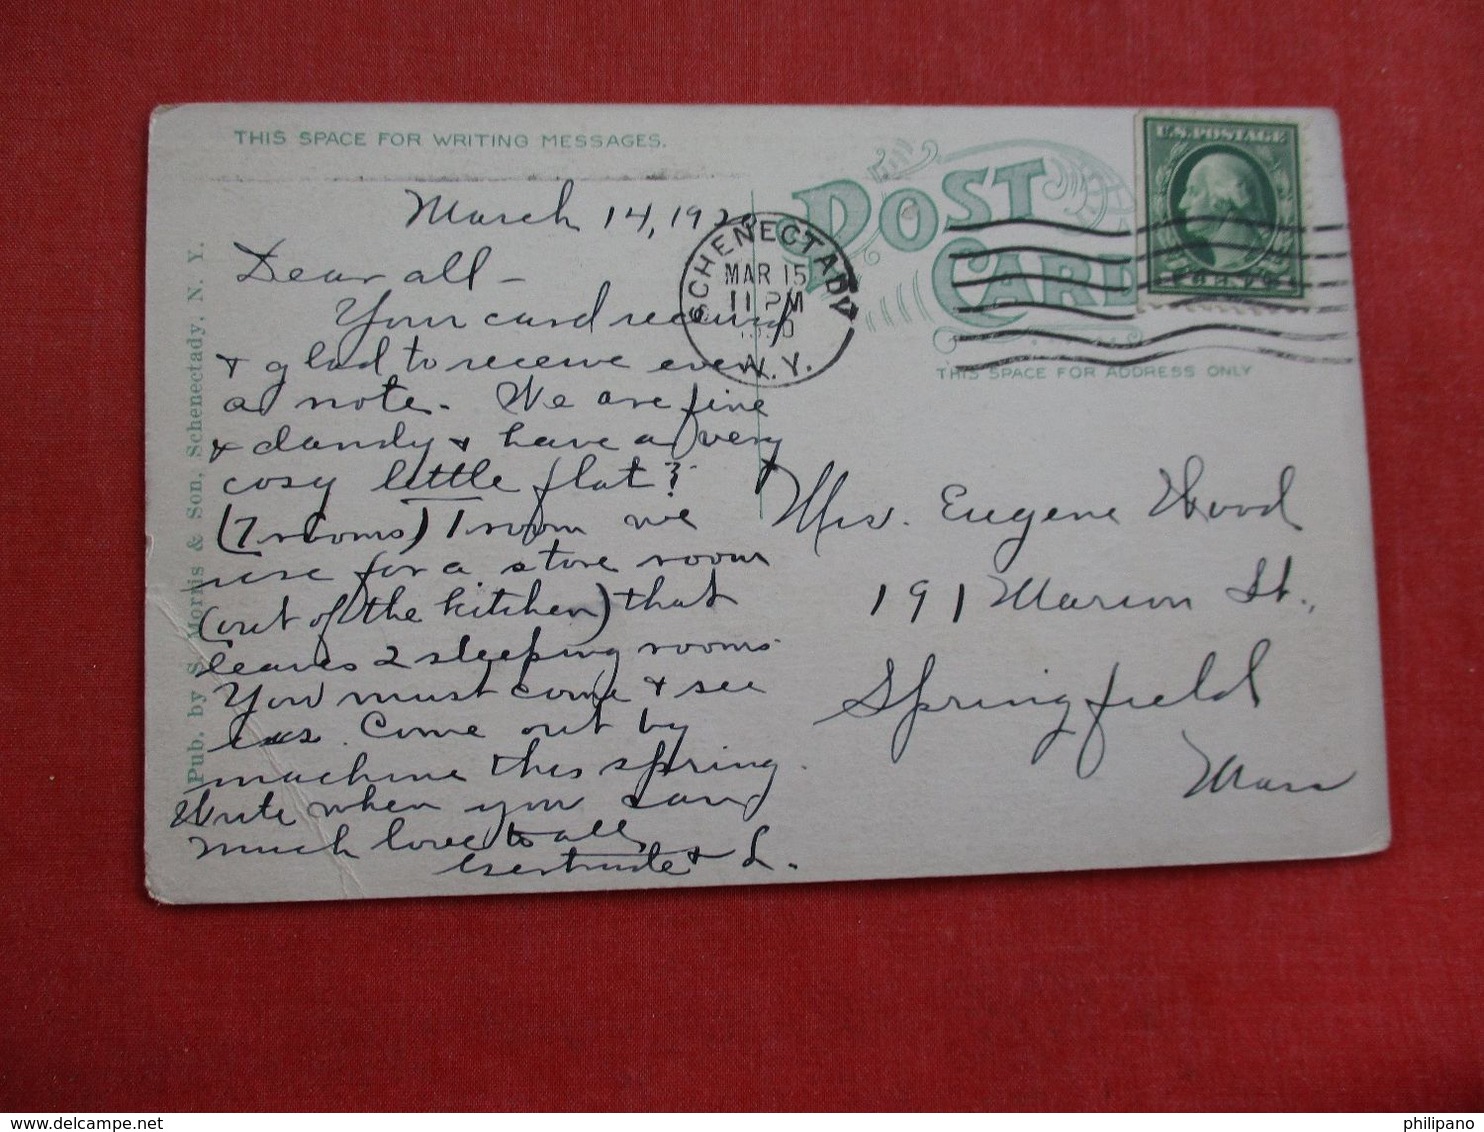 THIS SPACE FOR WRITING MESSAGES.
POST
CARD
THIS SPACE FOR ADDRESS ONLY
U.S. POSTAGE
SCHENECTADY
MAR 15
11 PM
N.Y.
Pub. by S. Morris & Son, Schenectady, N. Y.
March 14, 1920
Dear all -
Your card received
& glad to receive even
a note. We are fine
& dandy & have a very
cosy little flat?
(7 rooms) 1 room we
use for a store room
(out of the kitchen) that
leaves 2 sleeping rooms
You must come & see
us. Come out by
machine this spring.
Write when you can
much love to all
Gertrude & L.
Mrs. Eugene Wood
191 Marion St.,
Springfield
Mass
philipano